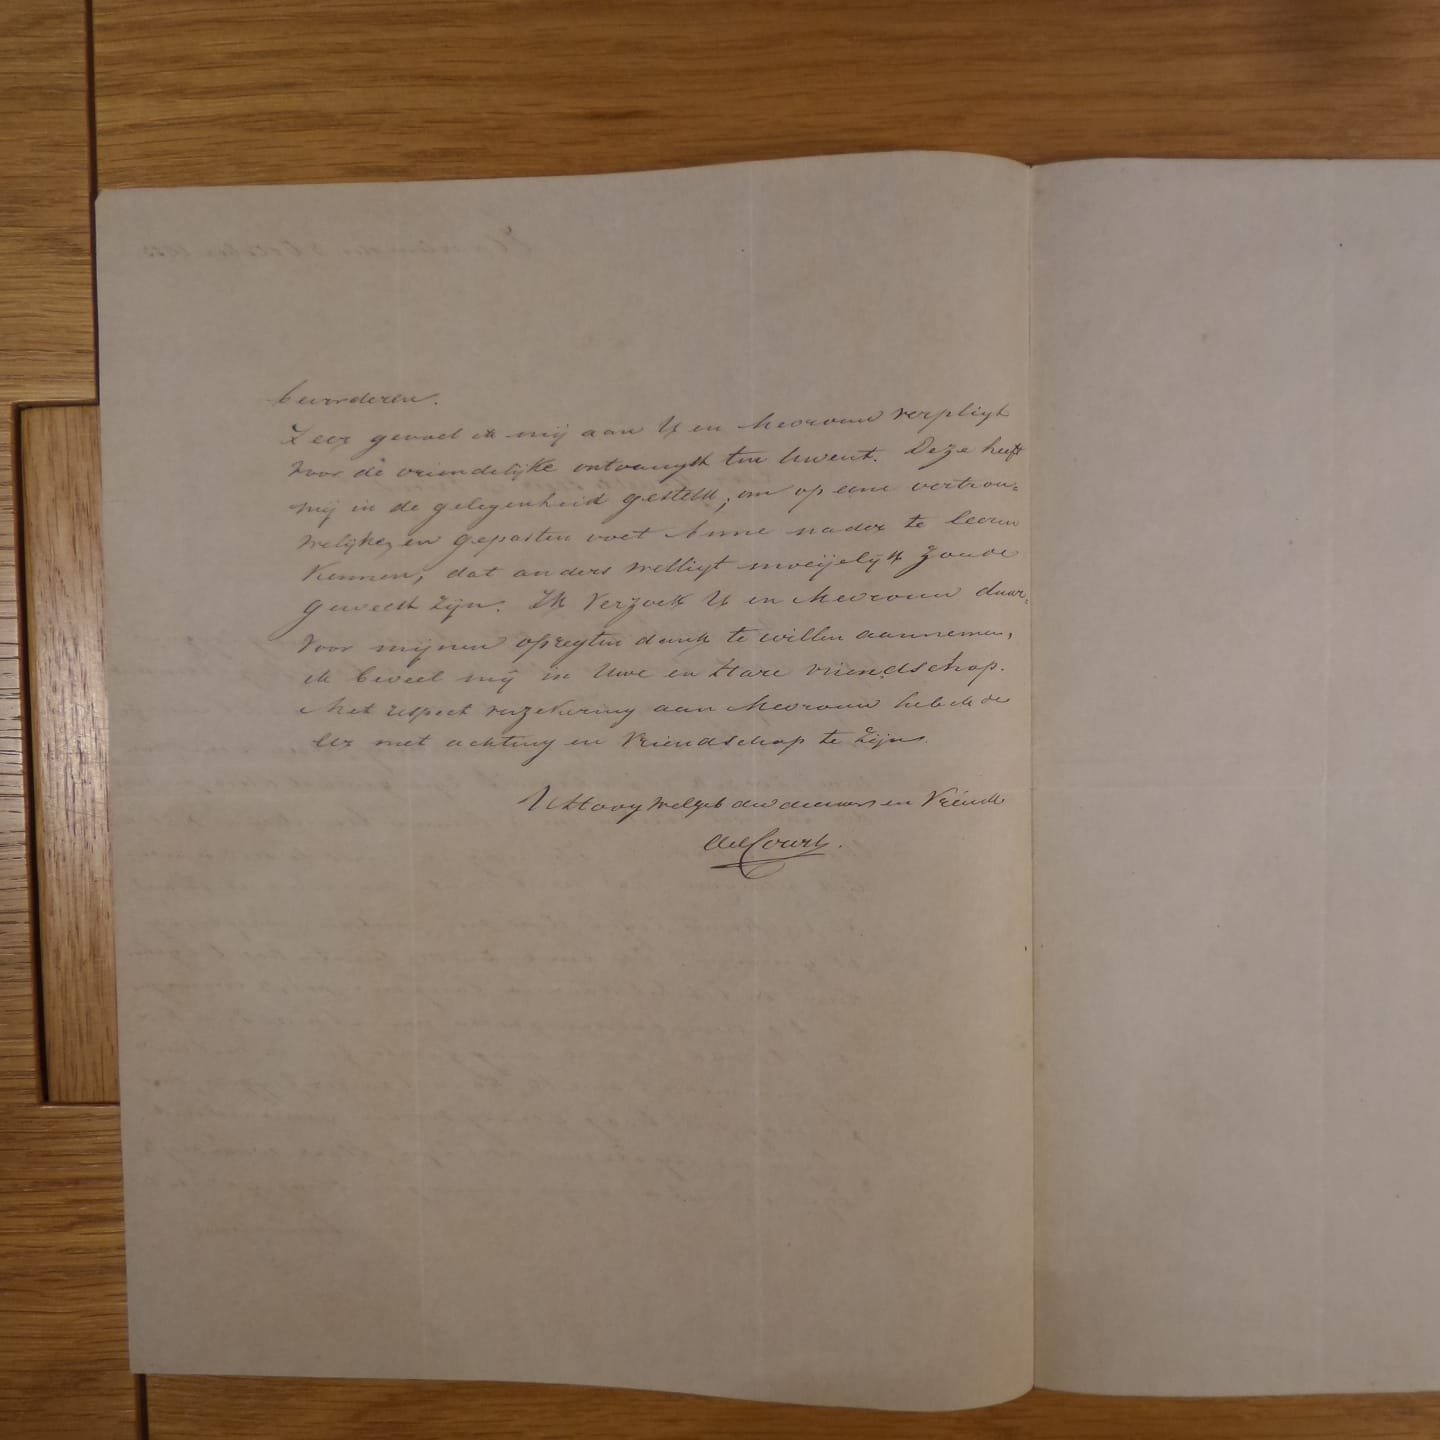 bevorderen.
Zeer gevoel ik mij aan U en Mevrouw verpligt
voor de vriendelijke ontvangst ten Uwent. Deze heeft
mij in de gelegenheid gesteld, om op eene vertrou-
welijke en gepasten voet Anne nader te leeren
kennen, dat anders welligt moeijelijk zoude
geweest zijn. Ik verzoek U en Mevrouw daar-
voor mijnen opregten dank te willen aannemen,
ik beveel mij in Uwe en Hare vriendschap.
Met respect verzekering aan Mevrouw heb ik de
eer met achting en vriendschap te zijn.
UHoogWelgeb dw dienaar en Vriend